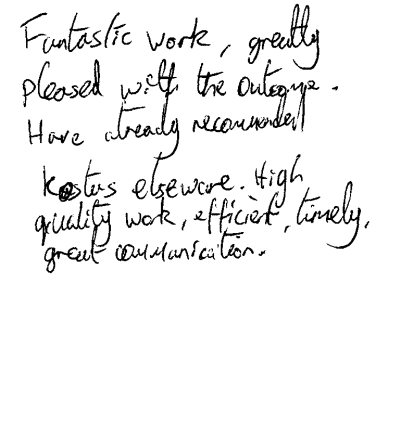 Fantastic work, greatly
pleased with the outcome.
Have already recommended
Kosters elseware. High
quality work, efficient, timely,
great communication.